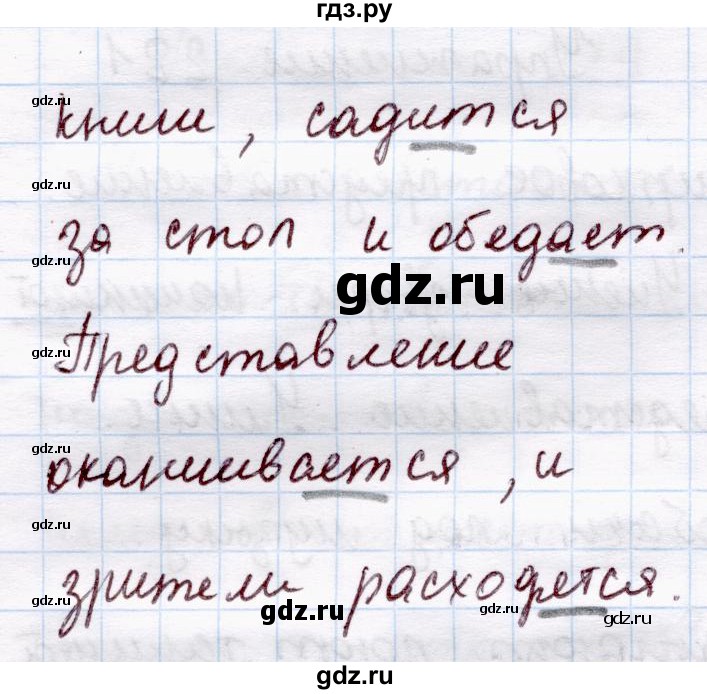 гдз.ру
gdz.ru
книги, садится
gdz.ru gdz.ru
gdz.ru
за стол и обедает.
gdz.ru gdz.ru
gdz.ru
Представление
gdz.ru
gdz.ru
оканчивается, и
gdz.ru
зрители расходятся.
gdz.ru gdz.ru gdz.ru gdz.ru
gdz.ru